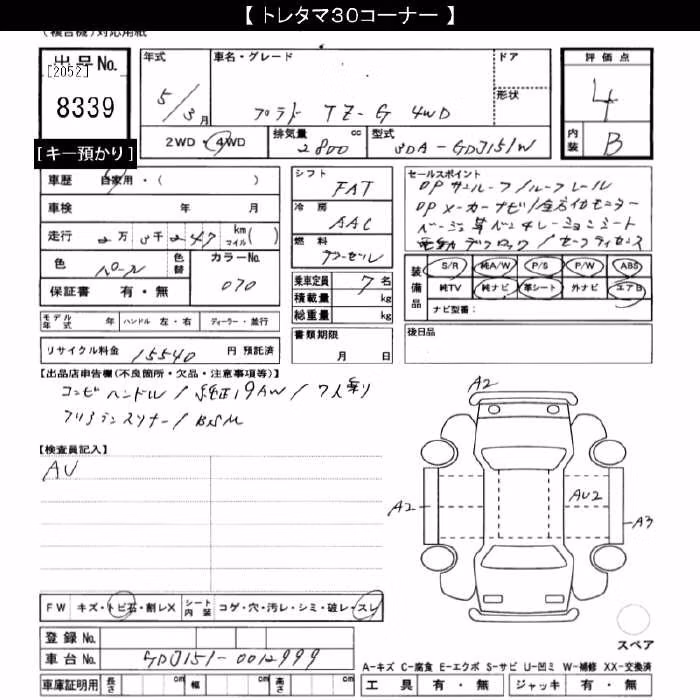 【 トレタマ30コーナー 】
(複合機)対応用紙
出品No.
[2052]
8339
[キー預かり]
年式
5/3月
車名・グレード
プラド TZ-G 4WD
ドア
形状
評価点
4
内装
B
2WD・4WD
排気量 2800 cc
型式 3DA-GDJ151W
車歴 自家用・( )
車検 年 月
走行 2万 5千 247 km マイル( )
色 パール
色替
カラーNo.
070
保証書 有・無
シフト
FAT
冷房
AAC
燃料
ケーセル
乗車定員 7 名
積載量 kg
総重量 kg
書類期限
月 日
セールスポイント
OPサンルーフ/ルーフレール
OPメーカーナビ/全方位モニター
ベージュ革ベンチレーションシート
電動デフロック/セーフティセンス
装備品
S/R 純A/W P/S P/W ABS
純TV 純ナビ 革シート 外ナビ エアB
ナビ型番:
後日品
モデル年式 年 ハンドル 左・右 ディーラー・並行
リサイクル料金 15540 円 預託済
【出品店申告欄(不良箇所・欠品・注意事項等)】
コンビハンドル/純正19AW/7人乗り
クリアランスソナー/BSM
【検査員記入】
AU
A2
A2
AU2
A3
FW キズ・トビ石・割レX
シート内装 コゲ・穴・汚レ・シミ・破レ・スレ
登録No.
車台No. GDJ151-0012999
スペア
A-キズ C-腐食 E-エクボ S-サビ U-凹ミ W-補修 XX-交換済
車庫証明用 長さ cm 幅 cm 高さ cm
工具 有・無 ジャッキ 有・無